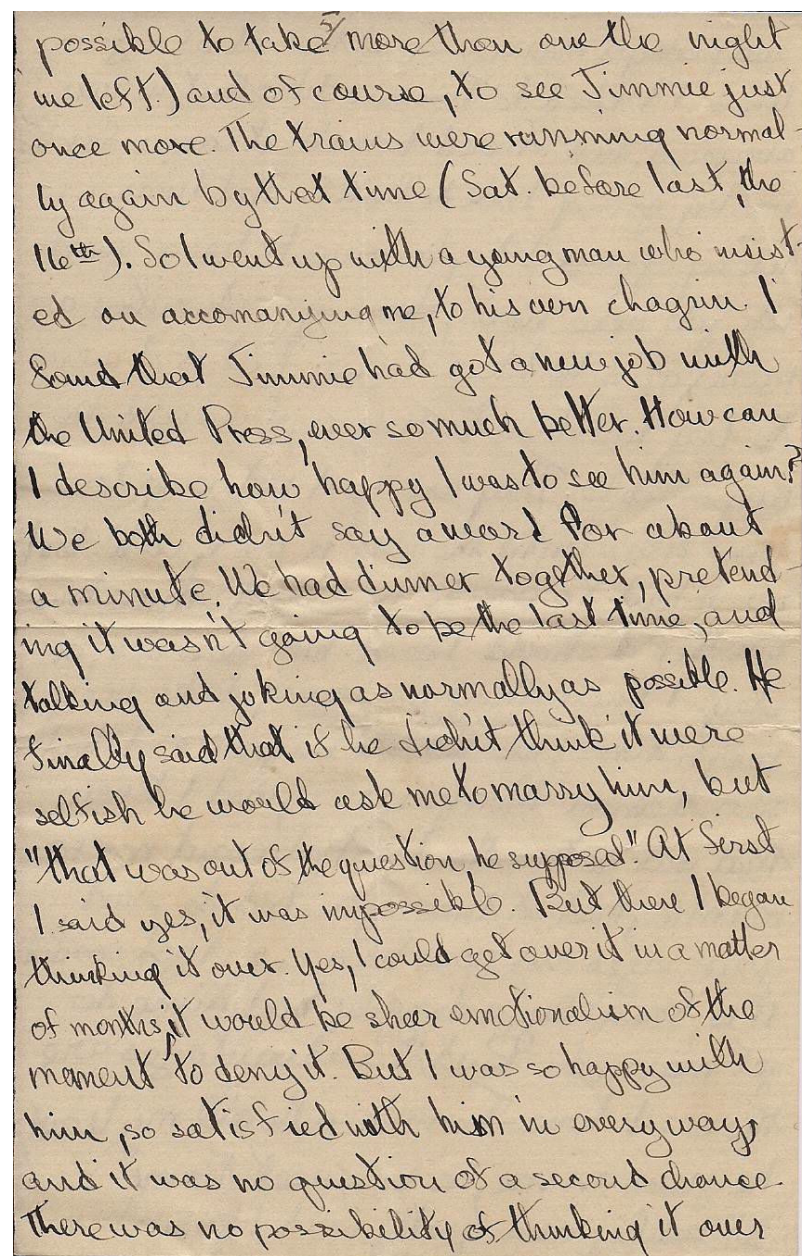 5/
possible to take more than one the night
we left.) and of course, to see Jimmie just
once more. The trains were running normal-
ly again by that time (Sat. before last, the
16th). So I went up with a young man who insist-
ed on accomanying me, to his own chagrin. I
found that Jimmie had got a new job with
the United Press, ever so much better. How can
I describe how happy I was to see him again?
We both didn't say a word for about
a minute. We had dinner together, pretend-
ing it wasn't going to be the last time, and
talking and joking as normally as possible. He
finally said that if he didn't think it were
selfish he would ask me to marry him, but
"that was out of the question, he supposed". At first
I said yes, it was impossible. But there I began
thinking it over. Yes, I could get over it in a matter
of months, it would be sheer emotionalism of the
moment to deny it. But I was so happy with
him, so satisfied with him in every way,
and it was no question of a second chance.
There was no possibility of thinking it over